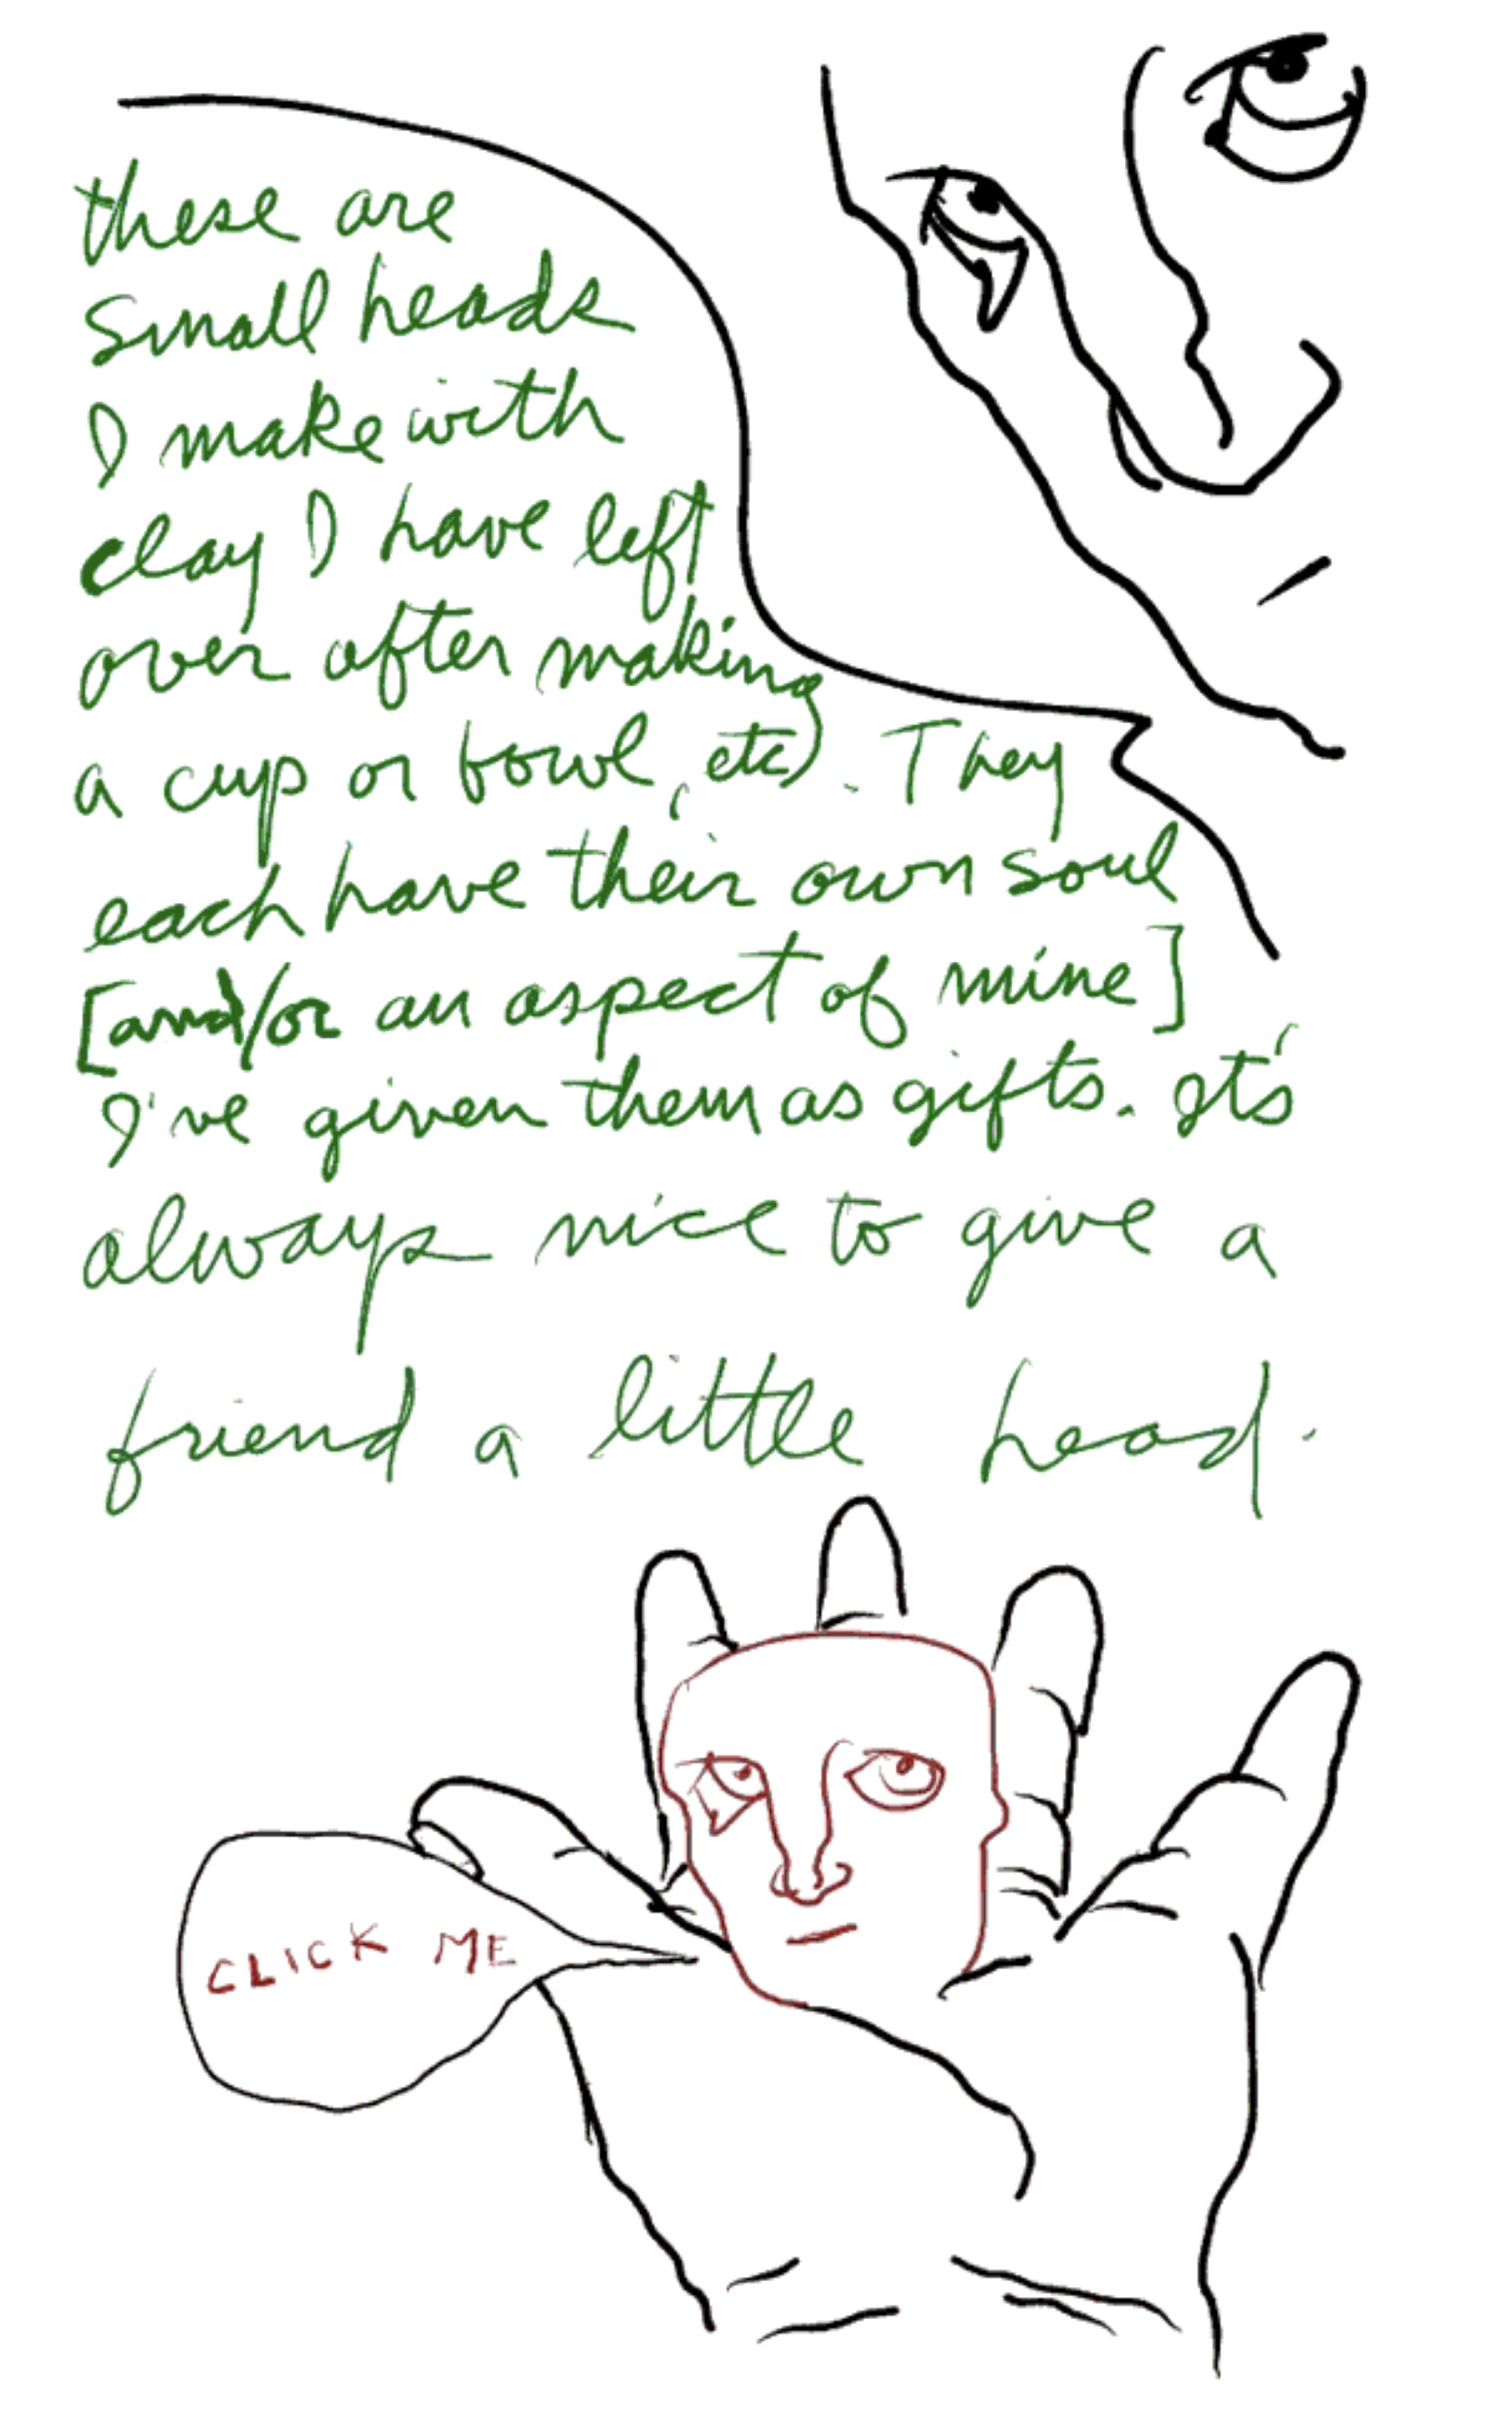 these are
small heads
I make with
clay I have left
over after making
a cup or bowl, etc). They
each have their own soul
[and/or an aspect of mine]
I've given them as gifts. It's
always nice to give a
friend a little head.
CLICK ME